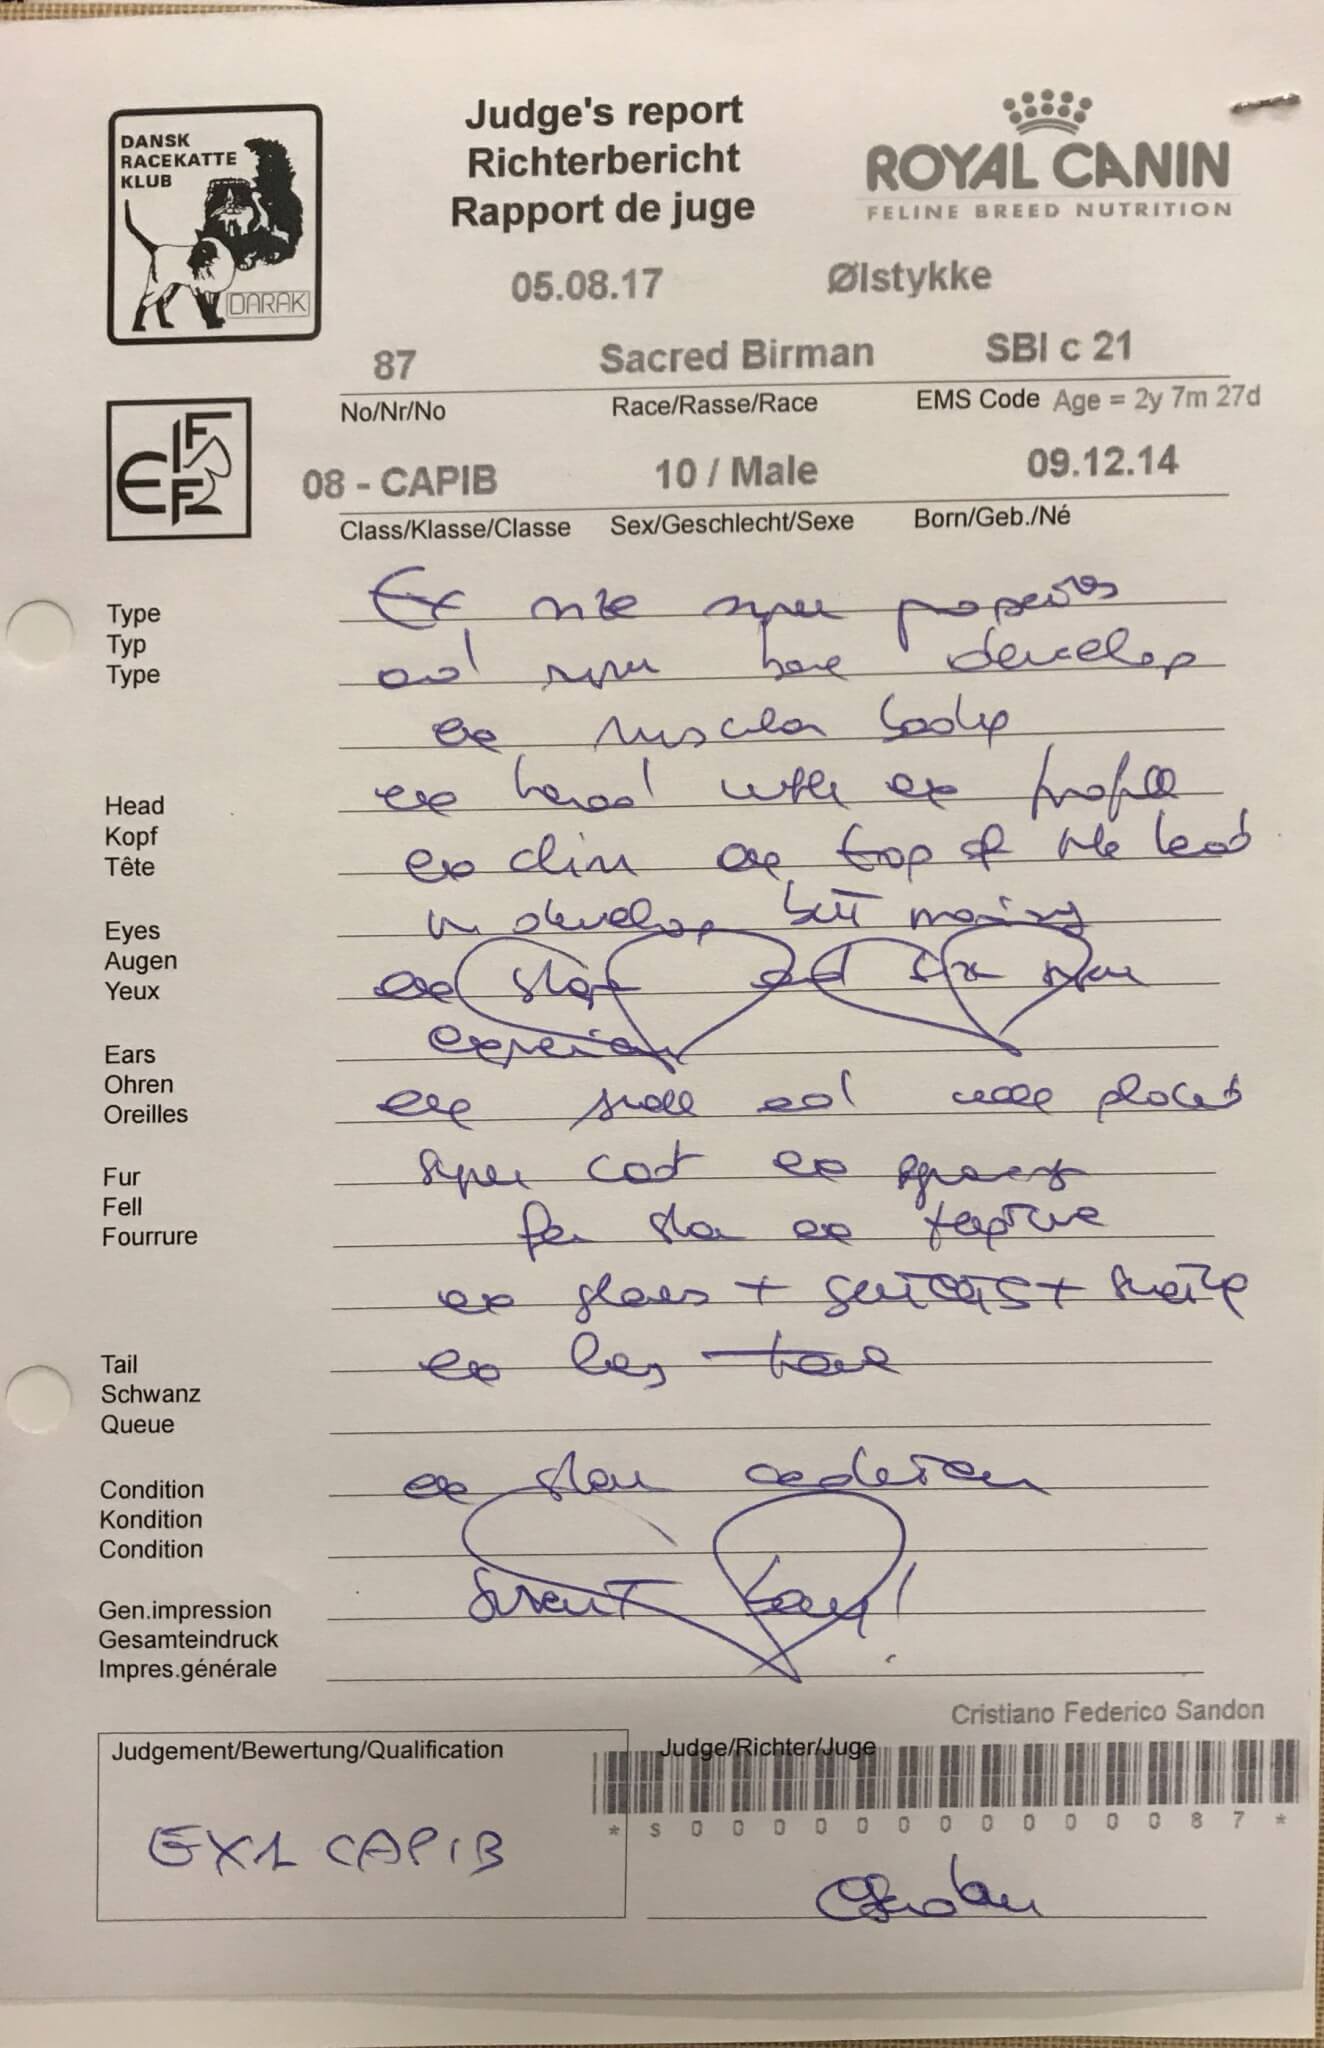 DANSK
RACEKATTE
KLUB
DARAK
Judge's report
Richterbericht
Rapport de juge
ROYAL CANIN
FELINE BREED NUTRITION
05.08.17 Ølstykke
87 Sacred Birman SBI c 21
No/Nr/No Race/Rasse/Race EMS Code Age = 2y 7m 27d
FIFe
08 - CAPIB 10 / Male 09.12.14
Class/Klasse/Classe Sex/Geschlecht/Sexe Born/Geb./Né
Type Ex size super
Typ
Type and super bone develop
ex muscular body
Head ex head with ex profile
Kopf
Tête ex chin ex top of the head
Eyes develop but
Augen
Yeux ex shape and super
expression
Ears
Ohren
Oreilles ex and well placed
Fur super coat ex
Fell
Fourrure ex texture
ex gloves + +
Tail ex long
Schwanz
Queue
Condition ex show condition
Kondition
Condition
Gen.impression boy!
Gesamteindruck
Impres.générale
Cristiano Federico Sandon
Judgement/Bewertung/Qualification Judge/Richter/Juge
*S0000000000087*
EX1 CAPIB